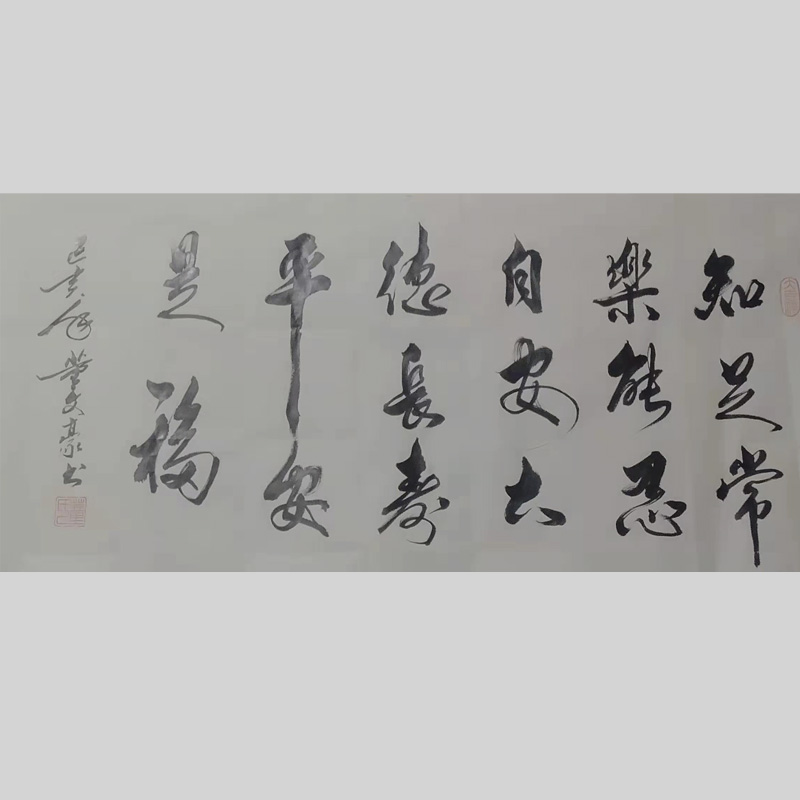 知足常
樂能忍
自安
德長壽
平安
是福
己亥年 文豪书